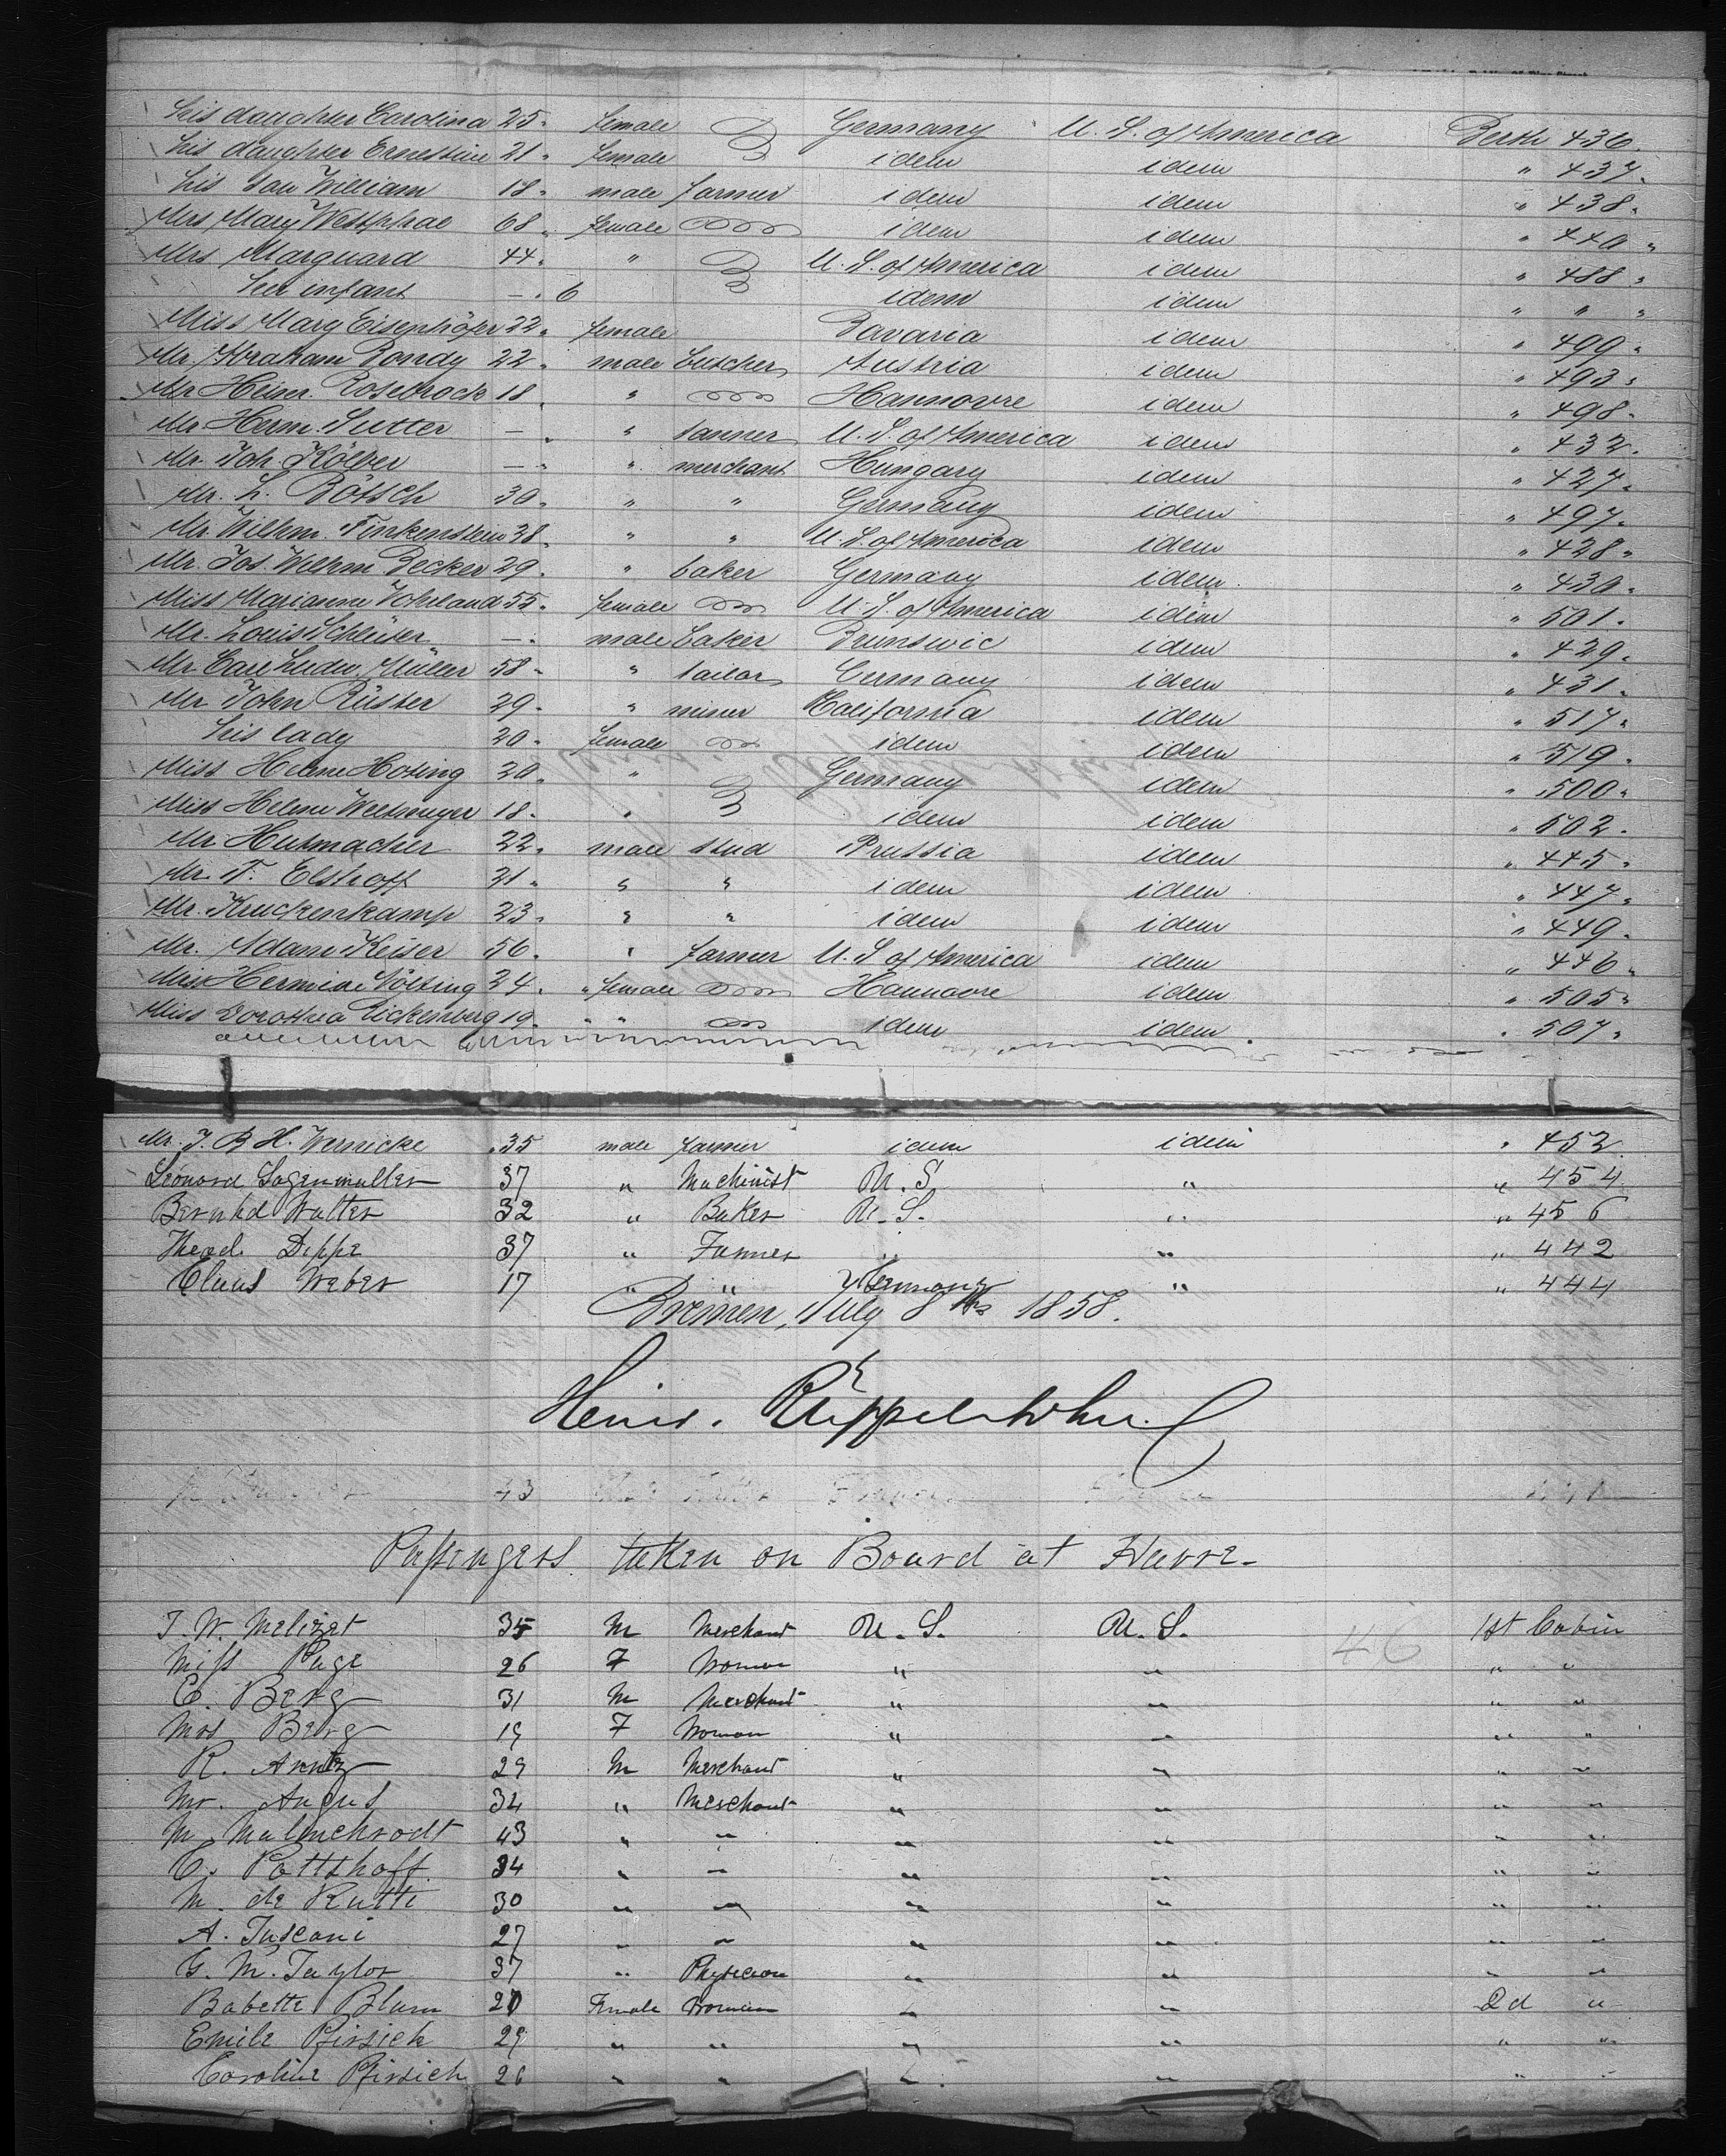 his daughter Carolina 25. female Germany U. S. of America Berth 436.
his daughter Ernestine 21. female idem idem " 437.
his son William 18. male farmer idem idem " 438.
Mrs Mary Westphal 68. female idem idem " 440.
Mrs Marquard 44. " U. S. of America idem " 488.
her infant —. 6 idem idem " " "
Miss Mary Eisenhöfer 22. female Bavaria idem " 499.
Mr. Abraham Bondy 22. male butcher Austria idem " 493.
Mr Heinr. Rosebrock 18. " Hannovre idem " 498.
Mr Herm. Sutter —. " tanner U. S. of America idem " 432.
Mr. Joh. Kölber —. " merchant Hungary idem " 427.
Mr. L. Bötsch 30. " " Germany idem " 497.
Mr. Wilhm. Finkenstein 38. " " U. S. of America idem " 428.
Mr. Jos. Wilhm Becker 29. " baker Germany idem. " 430.
Miss Marianne Vohland 55. female U. S. of America idem " 501.
Mr. Louis Schlüter —. male baker Brunswic idem " 429.
Mr Carl Ludw. Müller 58. " tailor Germany idem " 431.
Mr John Rüster 29. " miner California idem " 517.
his lady 20. female idem idem " 519.
Miss Helene Hoting 20. " Germany idem " 500.
Miss Helene Weetmeyer 18. " idem idem " 502.
Mr Hutmacher 22. male stud Prussia idem " 445.
Mr. F. Elshoff 21. " " idem idem " 447.
Mr. Kruckenkamp 23. " " idem idem " 449.
Mr. Adam Keiser 56. " farmer U. S of America idem " 446.
Miss Hermine Nölting 24. " female Hannovre idem " 505.
Miss Dorothea Eickenberg 19. " " idem idem. " 507.
Mr. J. B H. Wernicke 35 male farmer idem idem " 452.
Leonard Sagenmuller 37 " Machinist U. S. " " 454
Bernhd Walter 32 " Baker U. S. " " 456
Theod. Deppe 37 " Farmer " " " 442
Claus Weber 17 " " Germany " " 444
Bremen, July 8th 1858.
Heinr. Rüppel
43
Passengers taken on Board at Havre-
J. W. Melizet 35 M Merchant U. S. U. S. 1st Cabin
Miss Page 26 F Woman " " " "
C. Berg 31 M Merchant " " " "
Mrs Berg 19 F Woman " " " "
R. Arntz 29 M Merchant " " " "
Mr. Angus 34 " Merchant " " " "
M. Malinchrodt 43 " " " " " "
C. Pottshoff 34 " " " " " "
M. de Rutte 30 " " " " " "
A. Tuscani 27 " " " " " "
G. M. Taylor 37 " Physician " " " "
Babette Blum 20 Female Woman " " 2d "
Emile Pfirsich 29 " " " " " "
Caroline Pfirsich 26 " " " " " "
46